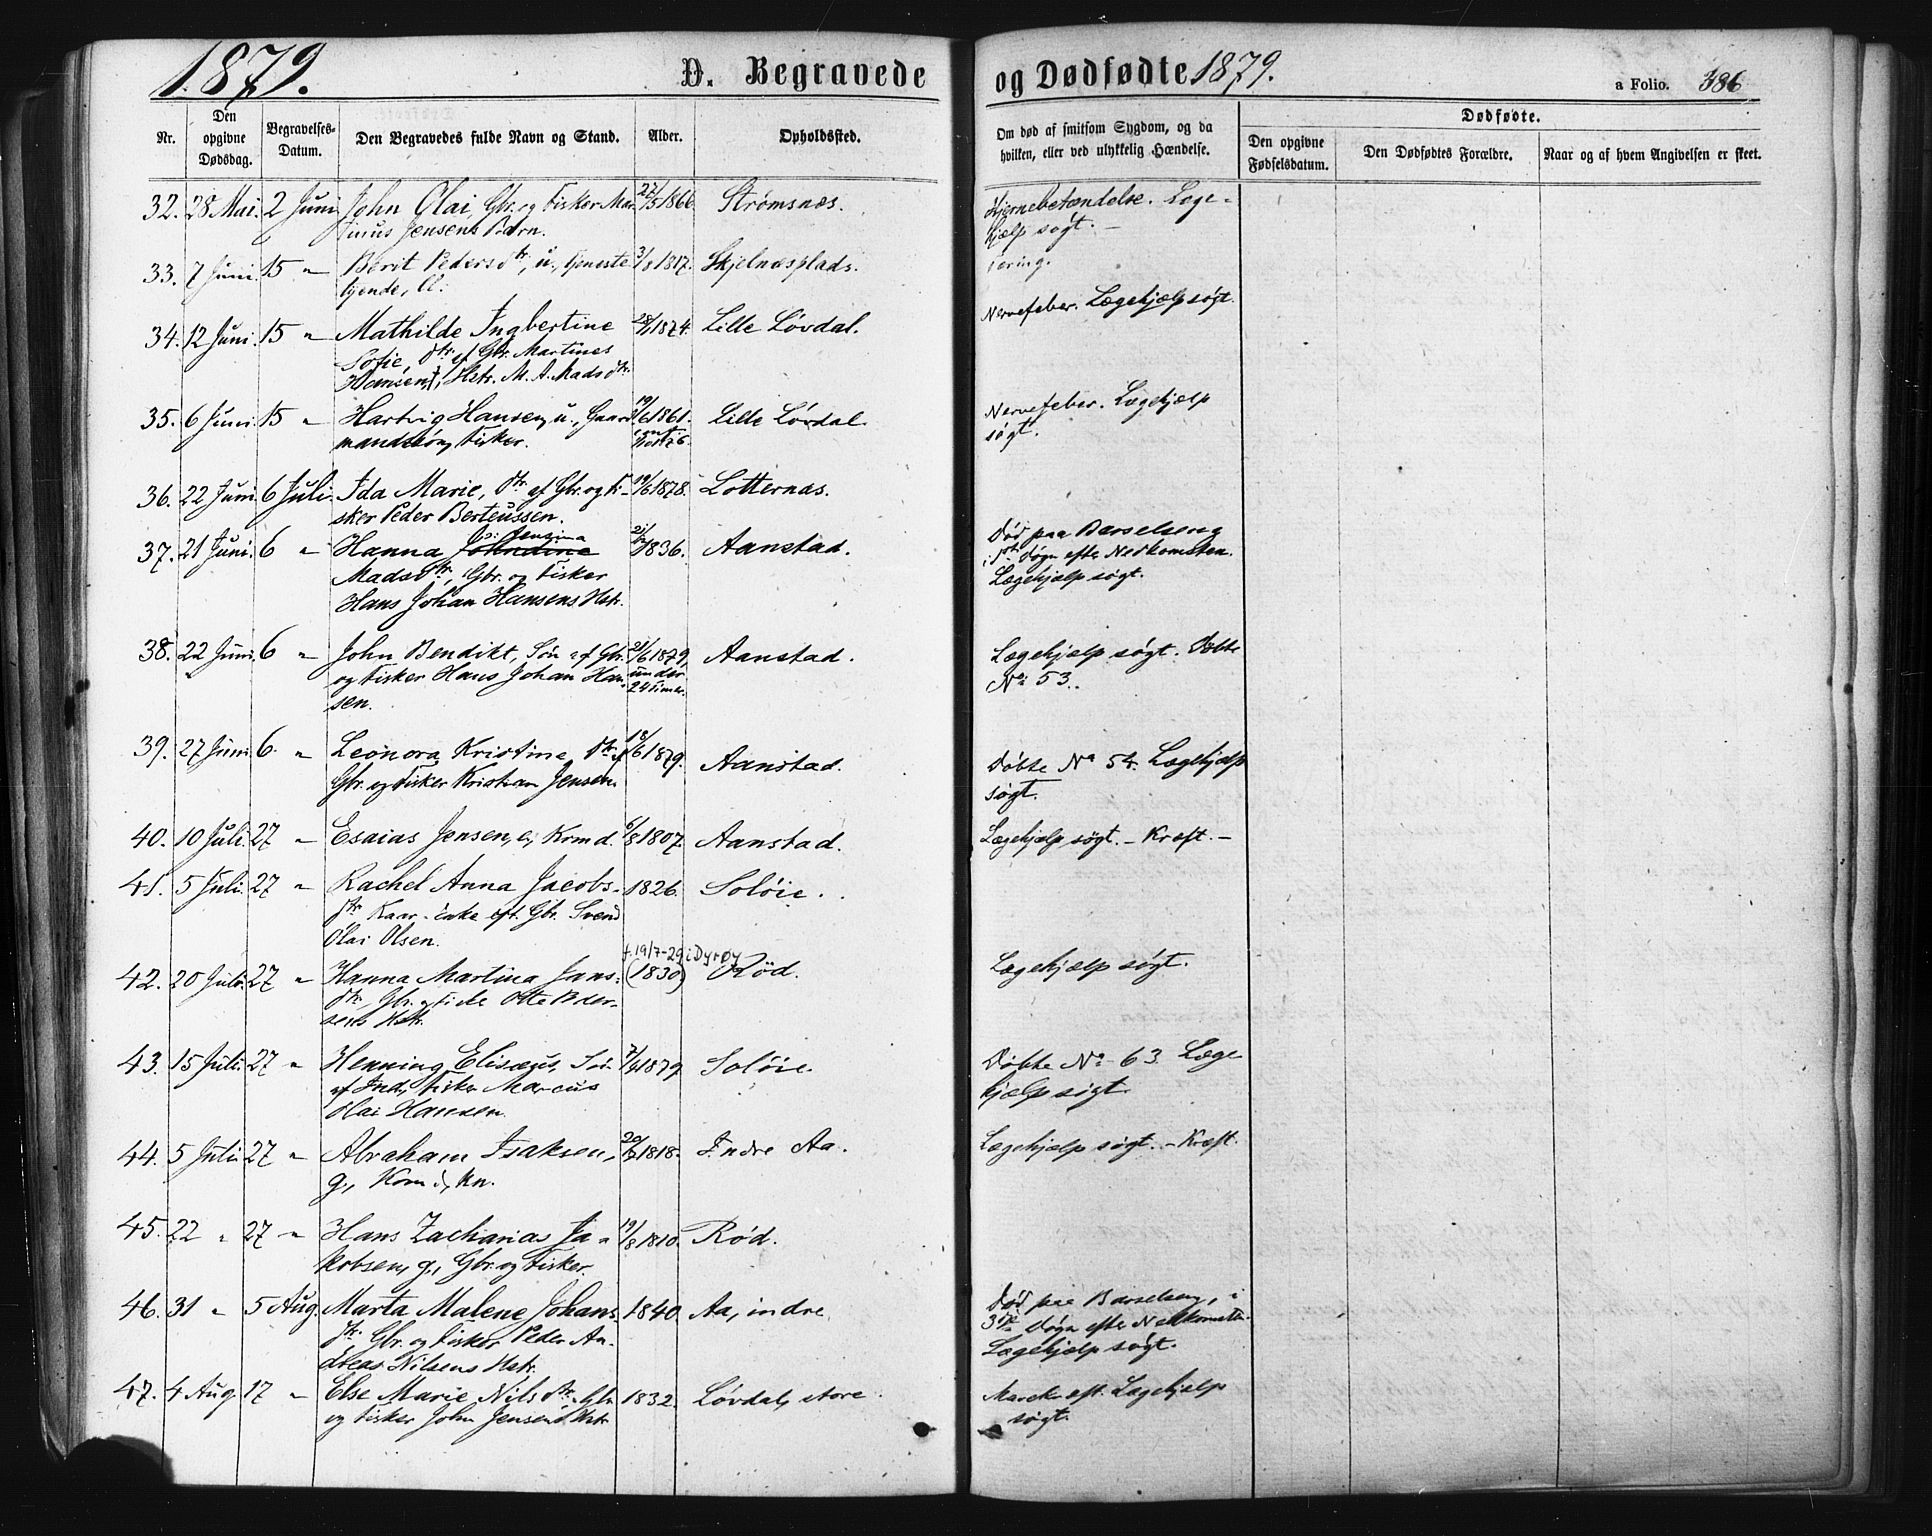 1879.
D. Begravede
og Dødfødte 1879.
a Folio. 386
Nr.
Den opgivne Dødsdag.
Begravelses-Datum.
Den Begravedes fulde Navn og Stand.
Alder.
Opholdssted.
Om død af smitsom Sygdom, og da hvilken, eller ved ulykkelig Hændelse.
Dødfødte.
Den opgivne Fødselsdatum.
Den Dødfødtes Forældre.
Naar og af hvem Angivelsen er skeet.
32. 28 Mai. 2 Juni John Olai, Gbr. og Fisker Mar- 27/5 1866. Strømsnæs. Hjernebetændelse. Læge-
tinus Jensens Barn. hjælp søgt. –
33. 7 Juni. 15 " Berit Pedersdtr, u., tjeneste 3/8 1817. Skjelnæsplads. Tæring.
tyende,
34. 12 Juni. 15 " Mathilde Ingbertine 28/1 1874. Lille Løvdal. Nervefeber. Lægehjælp søgt.
Sofie, dtr. af Gbr. Martines
Hansen, Hstr. M. A. Madsdtr.
35. 6 Juni 15 " Hartvig Hansen, u., Gaard- 19/6 1861. Lille Løvdal. Nervefeber. Lægehjælp
mandssøn, Fisker. søgt.
36. 22 Juni 6 Juli. Ida Marie, dtr. af Gbr. og Fi- 19/6 1878. Lotternæs.
sker Peder Berteussen.
37. 21 Juni. 6 " Hanna Johndine 1836. Aanstad. Død paa Barselseng
Madsdtr., Gbr. og Fisker i 1ste Døgn efter Nedkomsten.
Hans Johan Hansens Hstr. Lægehjælp søgt.
38. 22 Juni. 6 " John Bendikt, Søn af Gbr. 21/6 1879, Aanstad. Lægehjælp søgt. Døbte
og Fisker Hans Johan Han- under No 53.
sen. 24 Timer.
39. 27 Juni 6. " Leonora Kristine, dtr. af 18/6 1879. Aanstad. Døbte No 54. Lægehjælp
Gbr. og Fisker Kristian Jensen. søgt.
40. 10 Juli. 27 " Esaias Jensen, e, Krmd. 6/8 1807. Aanstad. Lægehjælp søgt. – Kræft. –
41. 5 Juli. 27 " Rachel Anna Jacobs- 1826. Soløie.
dtr. Kaar-enke eft. Gbr. Svend
Olai Olsen.
f. 19/7-29 i Dyrøy
42. 20 Juli. 27 " Hanna Martina Jans- (1830) Rød. Lægehjælp søgt.
dtr., Gbr. Otte Peder-
sens Hstr.
43. 15 Juli. 27 " Henning Elisæus, Søn 7/4 1879 Soløie. Døbte No 63. Læge
af Inds, Fisker Marcus hjælp søgt.
Olai Hansen.
44. 5 Juli 27 " Abraham Isaksen, 1818. Indre Aa. Lægehjælp søgt. – Kræft.
g.,
45. 22 " 27 " Hans Zacharias Ja- 19/8 1810. Rød.
kobsen, g., Gbr. og Fisker.
46. 31 " 5 Aug. Marta Malene Johans- 1840. Aa, indre. Død paa Barselseng, i
dtr. Gbr. og Fisker Peder An- 3die Døgn efter Nedkomsten.
dreas Nilsens Hstr. Lægehjælp søgt.
47. 4 Aug 17 " Else Marie Nilsdtr., Gbr. 1832. Løvdal, store. Lægehjælp
og Fisker John Jensens Hstr. søgt.